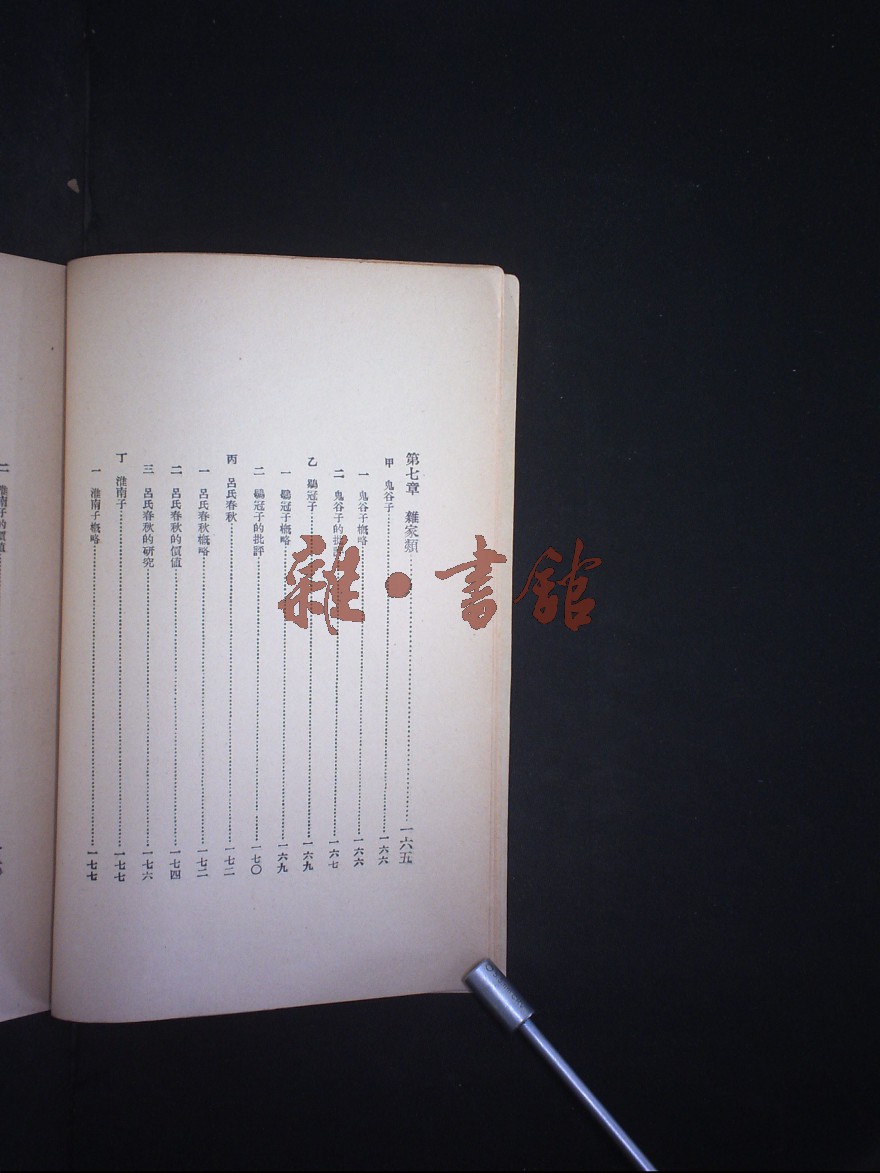 第七章　雜家類………一六五
甲　鬼谷子………一六六
一　鬼谷子概略………一六六
二　鬼谷子的批評………一六七
乙　鶡冠子………一六九
一　鶡冠子概略………一六九
二　鶡冠子的批評………一七〇
丙　呂氏春秋………一七二
一　呂氏春秋概略………一七二
二　呂氏春秋的價值………一七四
三　呂氏春秋的研究………一七六
丁　淮南子………一七七
一　淮南子概略………一七七
二　淮南子的價值………
雜·書館